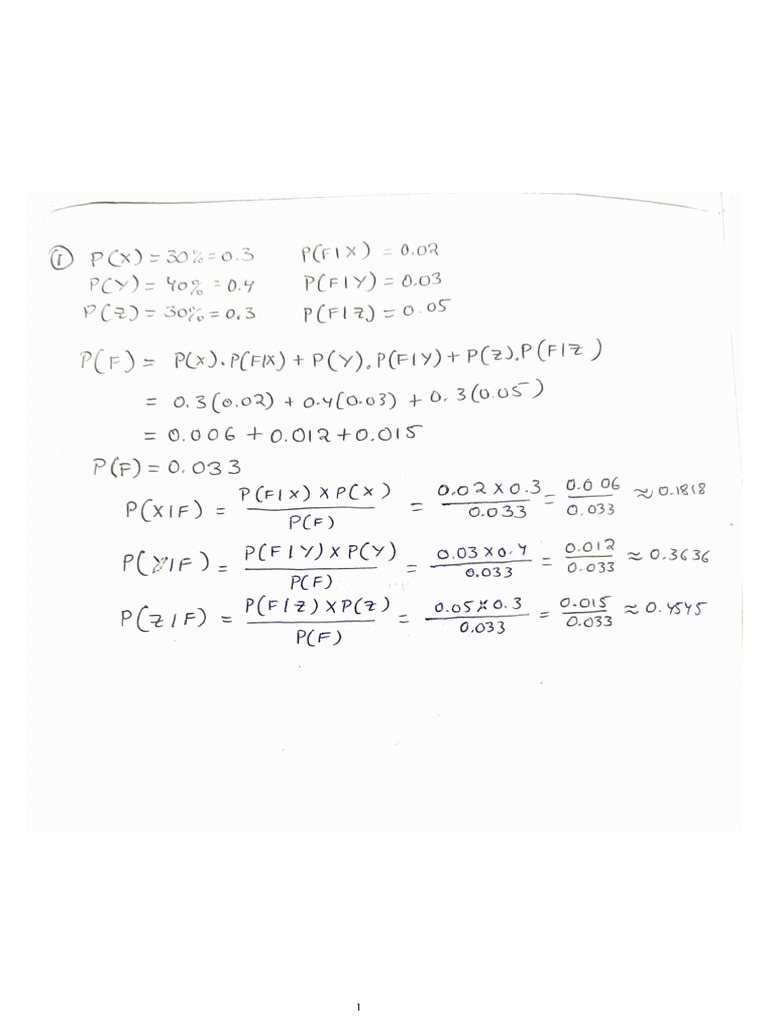 ① P(X) = 30% = 0.3 P(F|X) = 0.02
P(Y) = 40% = 0.4 P(F|Y) = 0.03
P(Z) = 30% = 0.3 P(F|Z) = 0.05
P(F) = P(X).P(F|X) + P(Y).P(F|Y) + P(Z).P(F|Z)
= 0.3(0.02) + 0.4(0.03) + 0.3(0.05)
= 0.006 + 0.012 + 0.015
P(F) = 0.033
P(X|F) = P(F|X) X P(X) / P(F) = 0.02 X 0.3 / 0.033 = 0.006 / 0.033 ≈ 0.1818
P(Y|F) = P(F|Y) X P(Y) / P(F) = 0.03 X 0.4 / 0.033 = 0.012 / 0.033 ≈ 0.3636
P(Z|F) = P(F|Z) X P(Z) / P(F) = 0.05 X 0.3 / 0.033 = 0.015 / 0.033 ≈ 0.4545
1